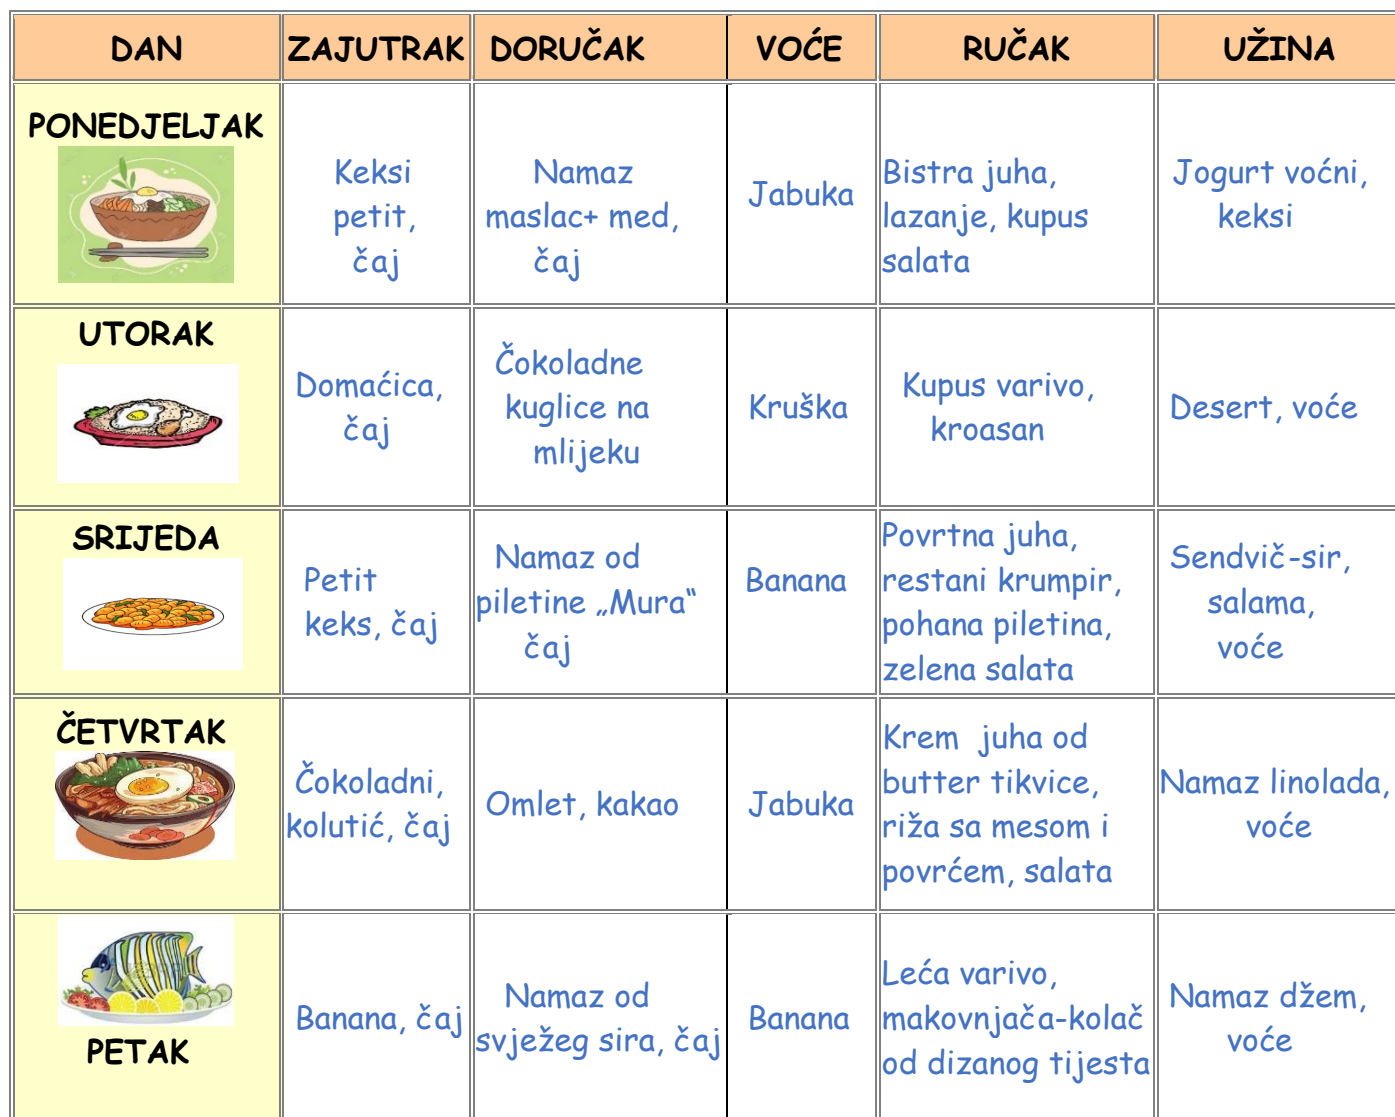 DAN
ZAJUTRAK
DORUČAK
VOĆE
RUČAK
UŽINA
PONEDJELJAK
Keksi
petit,
čaj
Namaz
maslac+ med,
čaj
Jabuka
Bistra juha,
lazanje, kupus
salata
Jogurt voćni,
keksi
UTORAK
Domaćica,
čaj
Čokoladne
kuglice na
mlijeku
Kruška
Kupus varivo,
kroasan
Desert, voće
SRIJEDA
Petit
keks, čaj
Namaz od
piletine „Mura“
čaj
Banana
Povrtna juha,
restani krumpir,
pohana piletina,
zelena salata
Sendvič-sir,
salama,
voće
ČETVRTAK
Čokoladni,
kolutić, čaj
Omlet, kakao
Jabuka
Krem juha od
butter tikvice,
riža sa mesom i
povrćem, salata
Namaz linolada,
voće
PETAK
Banana, čaj
Namaz od
svježeg sira, čaj
Banana
Leća varivo,
makovnjača-kolač
od dizanog tijesta
Namaz džem,
voće